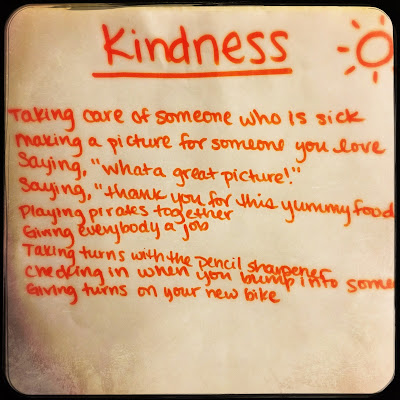 Kindness
Taking care of someone who is sick
making a picture for someone you love
Saying, "what a great picture!"
Saying, "thank you for this yummy food
Playing pirates together
Giving everybody a job
Taking turns with the pencil sharpener
checking in when you bump into some
Giving turns on your new bike